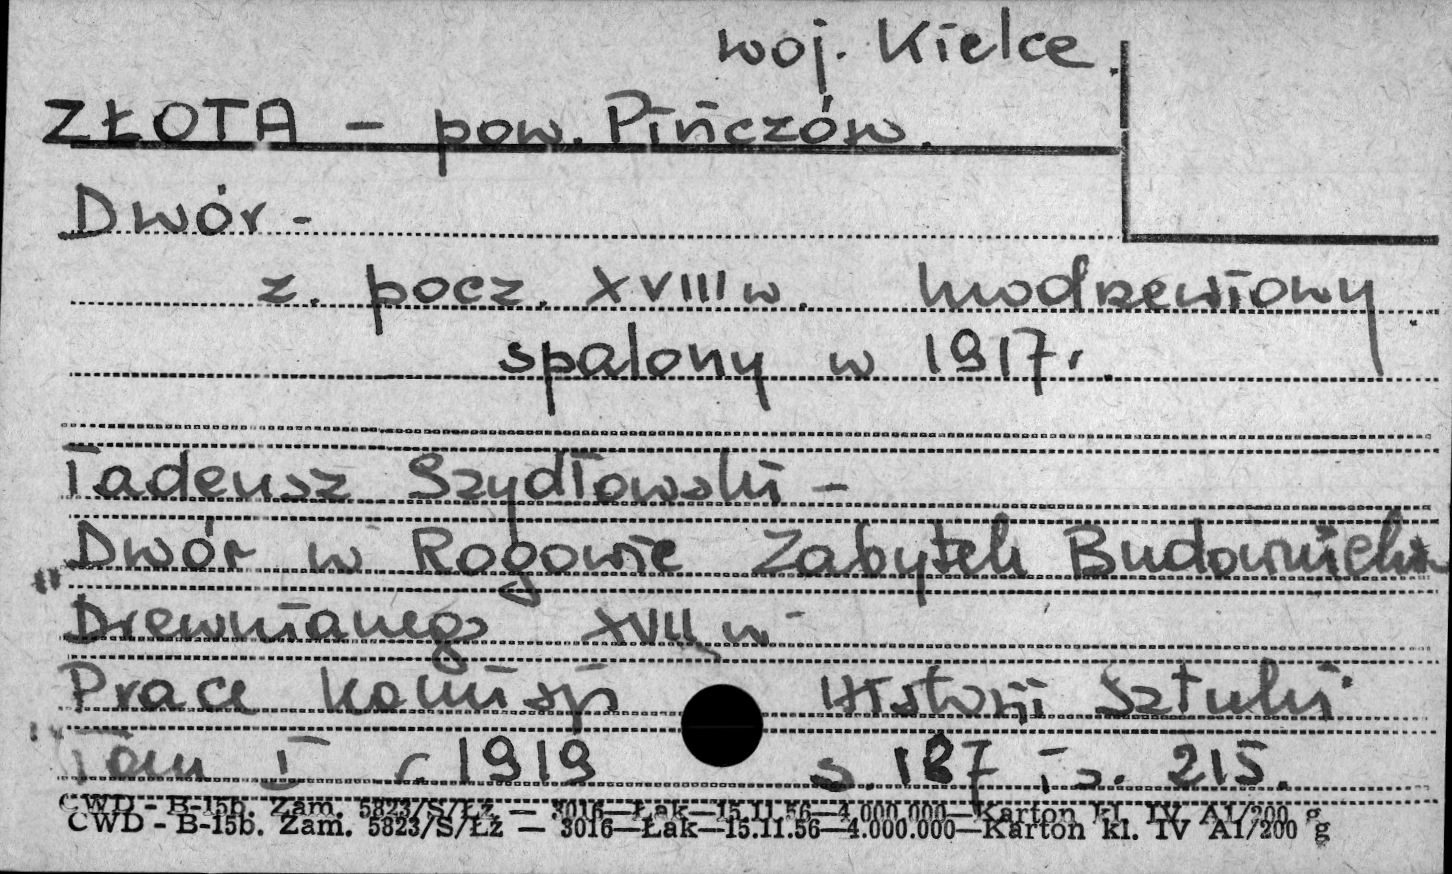 woj. Kielce.
ZŁOTA - pow. Pińczów.
Dwór -
z. pocz. XVIII w. modrzewiowy
spalony w 1917r.
Tadeusz Szydłowski -
Dwór w Rogowie Zabytek Budownictwa
"Drewnianego XVII w -
Prace Komisji Historii Sztuki
Tom I r. 1919 s. 187 i s. 215.
CWD - B-15b. Zam. 5823/S/Łż — 3016—Łak—15.11.56—4.000.000—Karton kl. IV A1/200 g
CWD - B-15b. Zam. 5823/S/Łż — 3016—Łak—15.11.56—4.000.000—Karton kl. IV A1/200 g